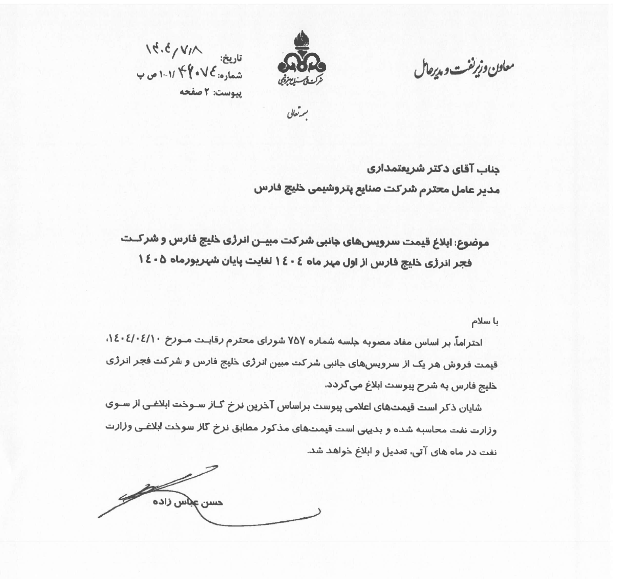 معاون وزیر نفت و مدیرعامل
شرکت ملی صنایع پتروشیمی
تاریخ: ۱۴۰۴/۷/۸
شماره: ۴۹۰۷۴/۱-۱ ص پ
پیوست: ۲ صفحه
بسمه تعالی
جناب آقای دکتر شریعتمداری
مدیر عامل محترم شرکت صنایع پتروشیمی خلیج فارس
موضوع: ابلاغ قیمت سرویس‌های جانبی شرکت مبین انرژی خلیج فارس و شرکت
فجر انرژی خلیج فارس از اول مهر ماه ۱۴۰۴ لغایت پایان شهریورماه ۱۴۰۵
با سلام
احتراماً، بر اساس مفاد مصوبه جلسه شماره ۷۵۷ شورای محترم رقابت مورخ ۱۴۰۴/۰۴/۱۰،
قیمت فروش هر یک از سرویس‌های جانبی شرکت مبین انرژی خلیج فارس و شرکت فجر انرژی
خلیج فارس به شرح پیوست ابلاغ می‌گردد.
شایان ذکر است قیمت‌های اعلامی پیوست براساس آخرین نرخ گاز سوخت ابلاغی از سوی
وزارت نفت محاسبه شده و بدیهی است قیمت‌های مذکور مطابق نرخ گاز سوخت ابلاغی وزارت
نفت در ماه های آتی، تعدیل و ابلاغ خواهد شد.
حسن عباس زاده